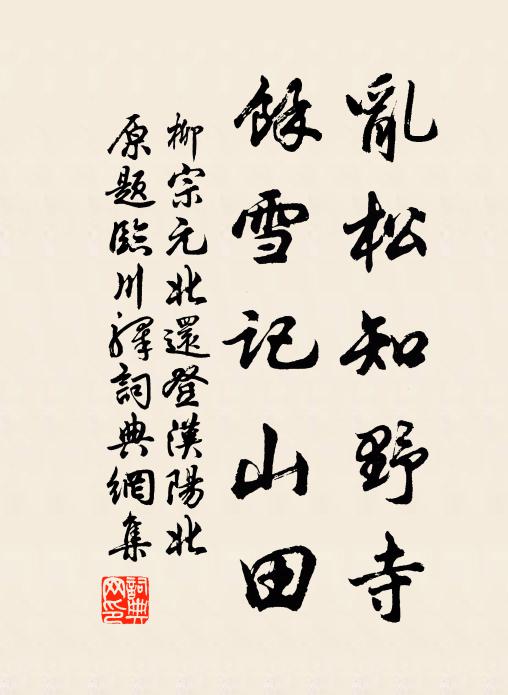 亂松知野寺
餘雪記山田
柳宗元北還登漢陽北
原題臨川驛詞典網集
詞典
网印